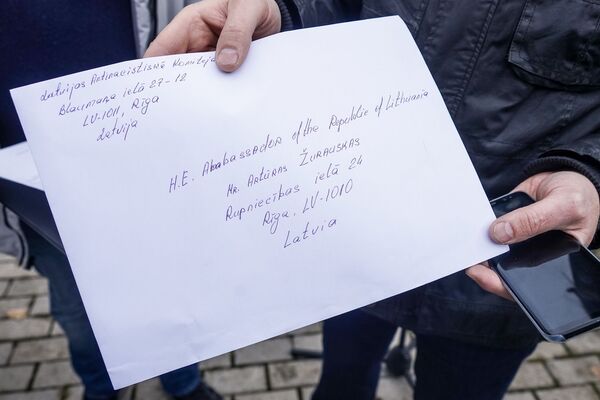 Latvijas Antinacistiskā Komiteja
Blaumaņa ielā 27-12
LV-1011, Rīga
Latvija
H.E. Ababassador of the Republic of Lithuania
Mr. Artūras Žurauskas
Rupniecības ielā 24
Rīga, LV-1010
Latvia